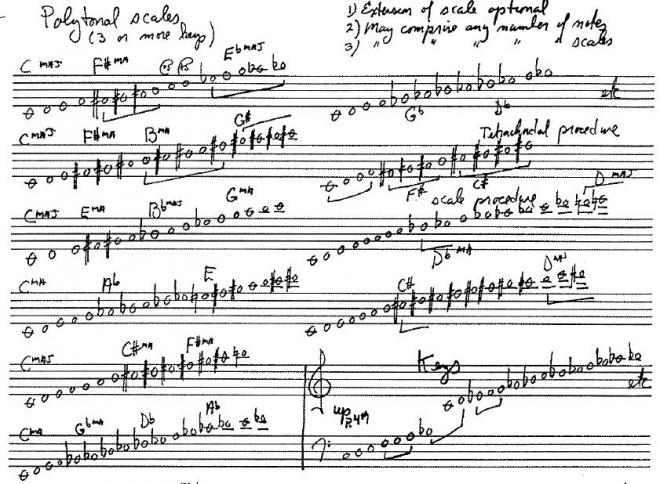 Polytonal scales
(3 or more keys)
1) Extension of scale optional
2) May comprise any number of notes
3) " " " " " scales
C MAJ F# MA E♭ MAJ
G♭ D♭ etc
C MAJ F# MA B MA G# Tetrachordal procedure
F# C#
C MAJ E MA B♭ MAJ G MA scale procedure D MAJ
D♭ MA
C MA A♭ E C# D MAJ
C MAJ C# MA F# MA Keys
etc
up P. 4th
C MA G♭ MA D♭ A♭